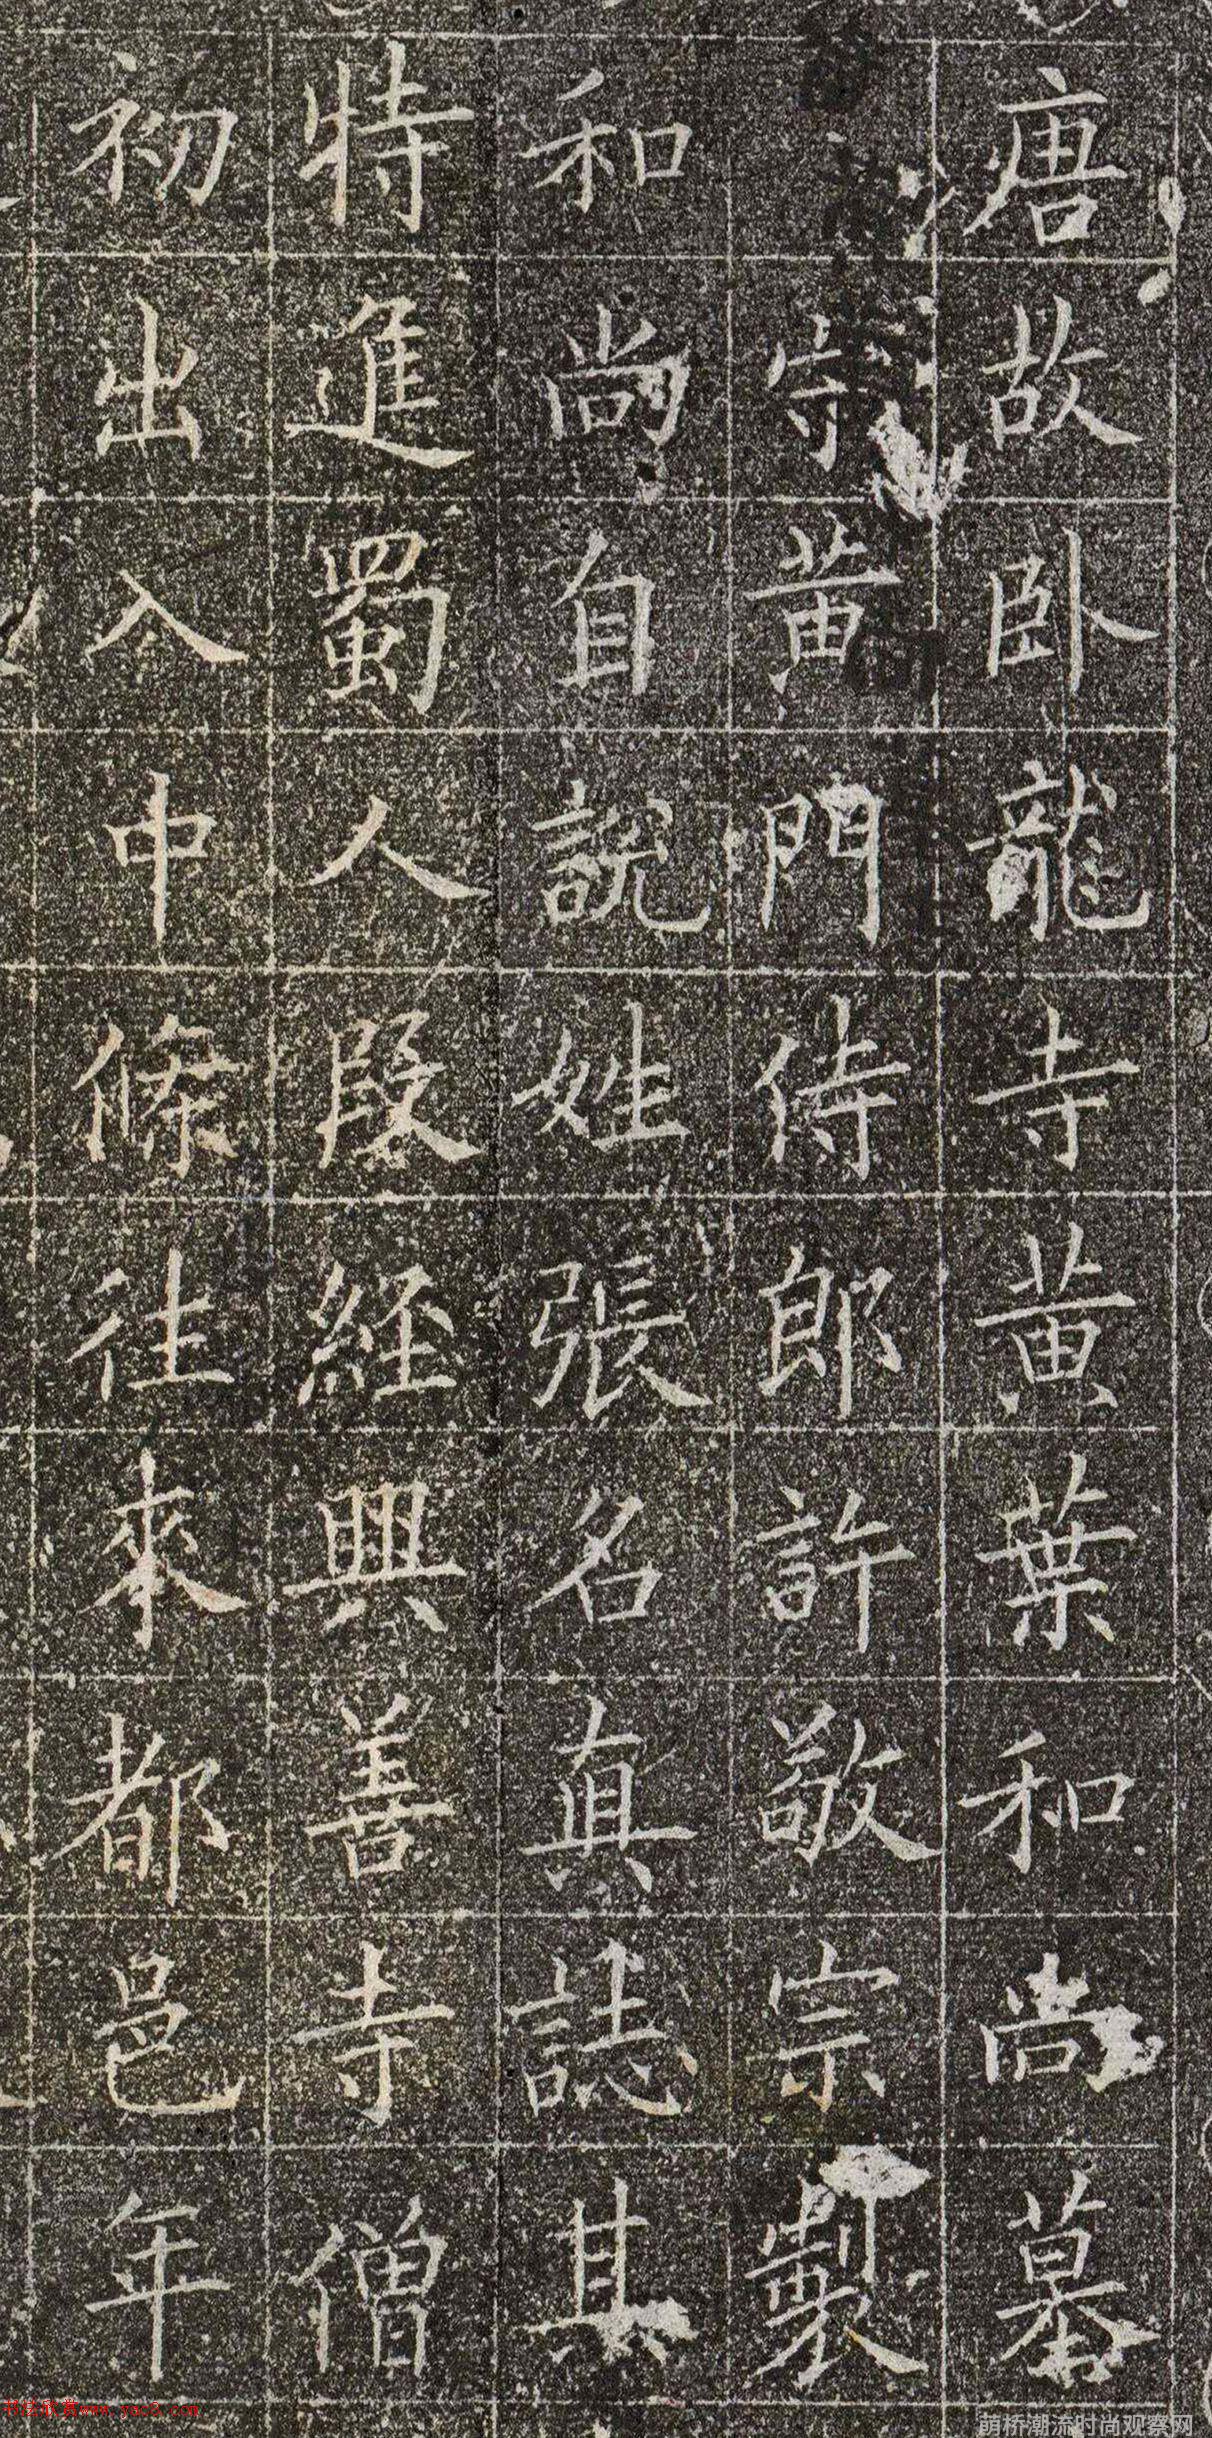 唐故卧龍寺黄葉和尚墓
守黄門侍郎許敬宗製
和尚自說姓張名真誌其
特進蜀人段經興善寺僧
初出入中條往來都邑年
书法欣赏www.yac8.com
萌桥潮流时尚观察网